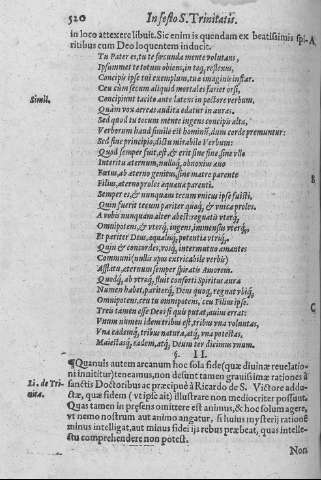 520 In festo S. Trinitatis.
in loco attexere libuit. Sic enim is quendam ex beatissimis spi- A
ritibus cum Deo loquentem inducit.
Tu Pater es, tu te fœcunda mente volutans,
Ipsummet te totum obiens, in teq; reflexus,
Concipis ipse tui exemplum, tuæ imaginis instar.
Ceu cùm secum aliquid mortales fari et orsi,
Simil. Concipiunt tacitè ante latens in pectore verbum,
Quàm vox aëreas audita edatur in auras.
Sed quod tu tecum mente ingens concipis alta,
Verborum haud simile est hominū, dum corde premuntur:
Sed sine principio, dictu mirabile Verbum:
Quod semper fuit, est, & erit sine fine, sine vllo
Interitu æternum, nulloq; obnoxium æuo
Fœtus, ab æterno genitus, sine matre parente B
Filius, æterno proles æquæua parenti.
Semper es, & nunquam tecum vnicus ipse fuisti,
Quin fuerit tecum pariter quoq; & vnica proles.
A vobis nunquam alter abest: regnatis vterq;
Omnipotens, & vterq; ingens, immensus vterq;
Et pariter Deus, æqualiq; potentia vtriq;
Quin & concordes, voiq; intermutuo amantes
Communi (nullis opus extricabile verbis)
Afflatu, æternum semper spiratis Amorem.
Quodq; ab vtroq; fluit conforti Spiritus aura
Numen habet, pariterq; Deus quoq; regnat vbiq;
Omnipotens, ceu tu omnipotens, ceu Filius ipse. C
Treis tamen esse Deos si quis putat, auius errat:
Vnum numen idem tribus est, tribus vna voluntas,
Vna eademq; tribus natura, atq; vna potestas,
Maiestasq; eadem, atq; Deum ter dicimus vnum.
§. II.
¶ Quanuis autem arcanum hoc sola fide (quæ diuinæ reuelatio-
ni innititur) teneamus, non desunt tamen grauissimæ rationes à
Li. de Tri- sanctis Doctoribus ac præcipuè à Ricardo de S. Victore addu-
nita. ctæ, quæ fidem (vt ipse ait) illustrare non mediocriter possunt.
Quas tamen in præsens omittere est animus, & hoc solum agere,
vt nemo nostrum aut animo angatur, si huius mysterij rationē
minus intelligat, aut minus fidei ijs rebus præbeat, quas intelle-
ctu comprehendere non potest.
Non